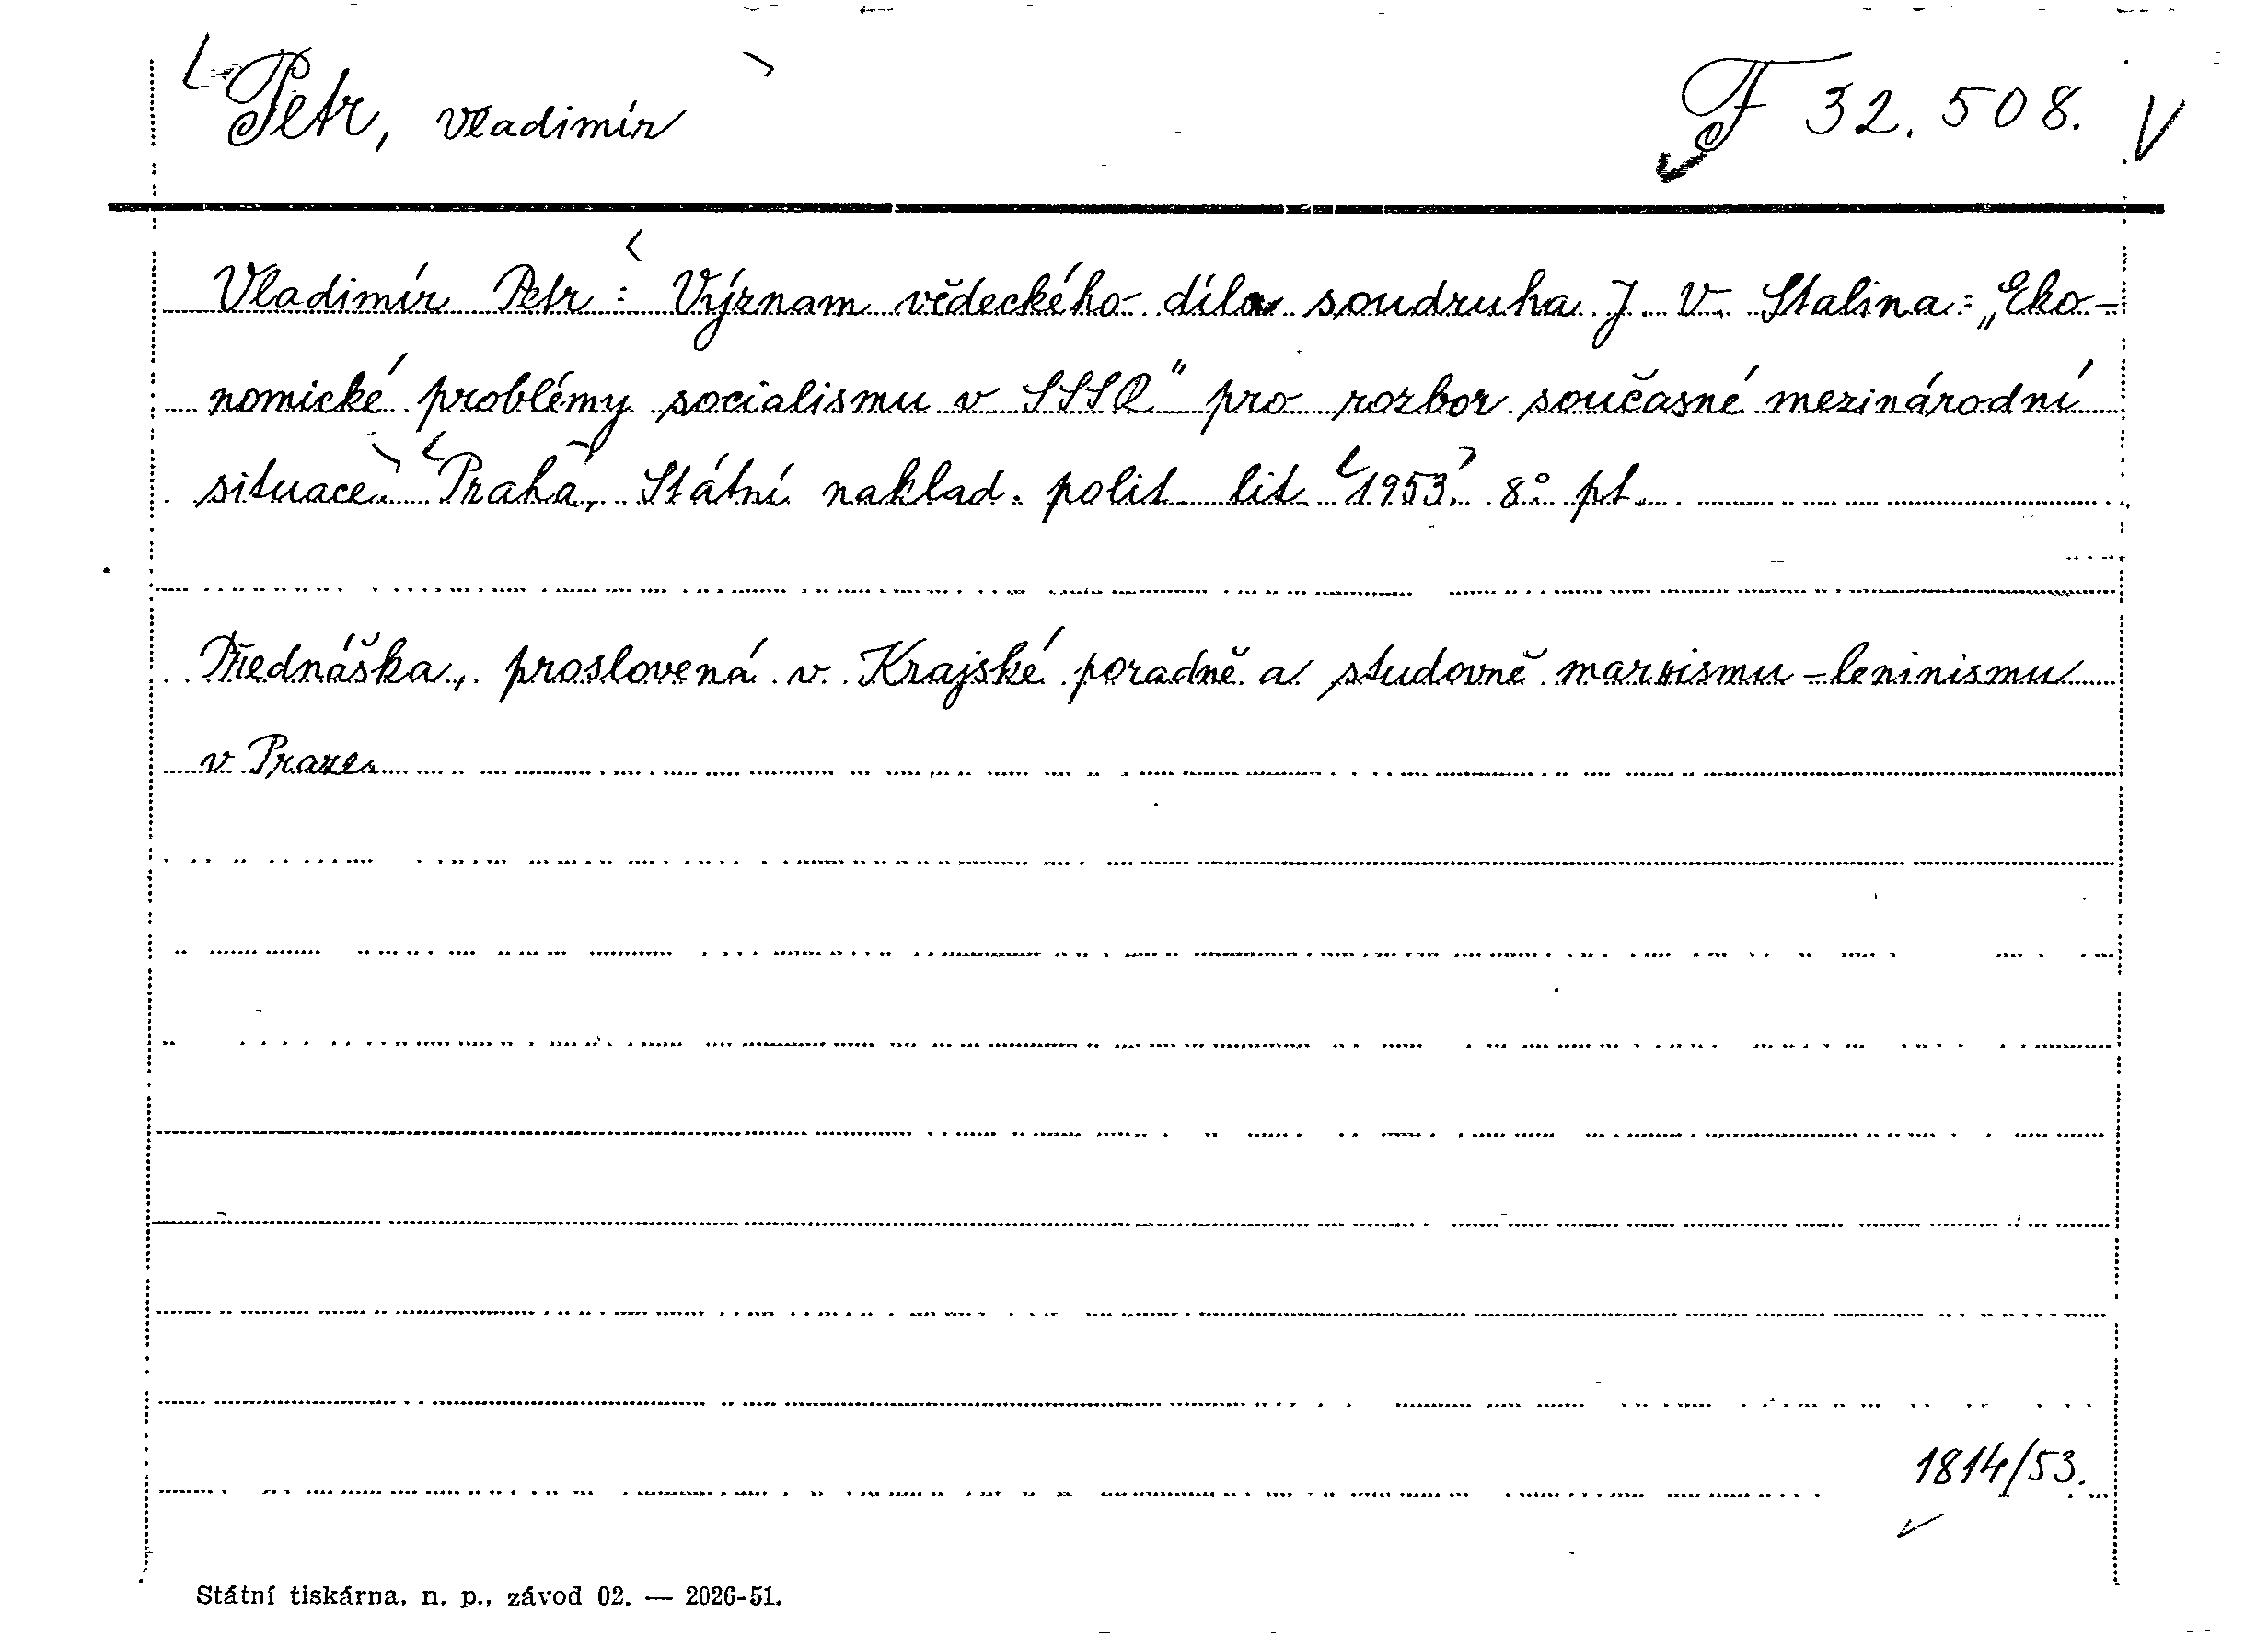 Petr, Vladimír
F 32.508.
Vladimír Petr: Význam vědeckého díla soudruha J. V. Stalina: „Eko-
nomické problémy socialismu v SSSR" pro rozbor současné mezinárodní
situace. Praha, Státní naklad. polit. lit. 1953. 8° pt.
Přednáška, proslovená v Krajské poradně a studovně marxismu-leninismu
v Praze.
1814/53.
Státní tiskárna, n. p., závod 02. — 2026-51.